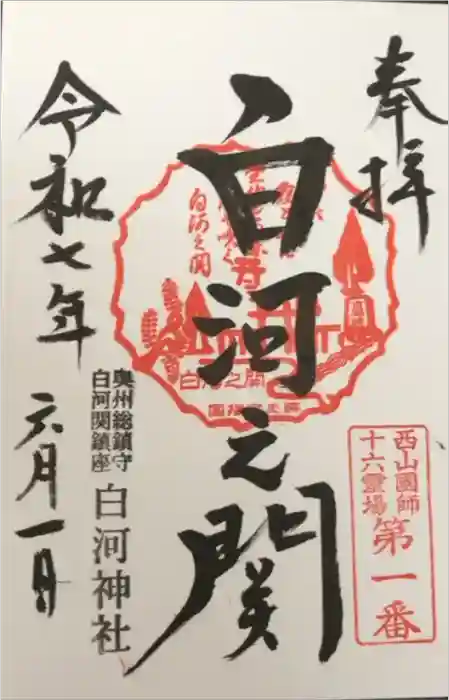 奉拝
白河之関
白河之関
白河之関
西山國師
十六霊場
第一番
奥州総鎮守
白河関鎮座
白河神社
令和七年
六月一日